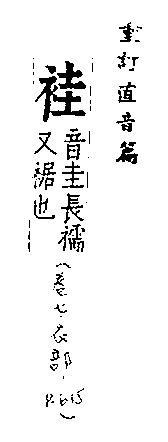 重訂直音篇
袿
音圭長襦
又裾也
(卷七衣部,
P.615)